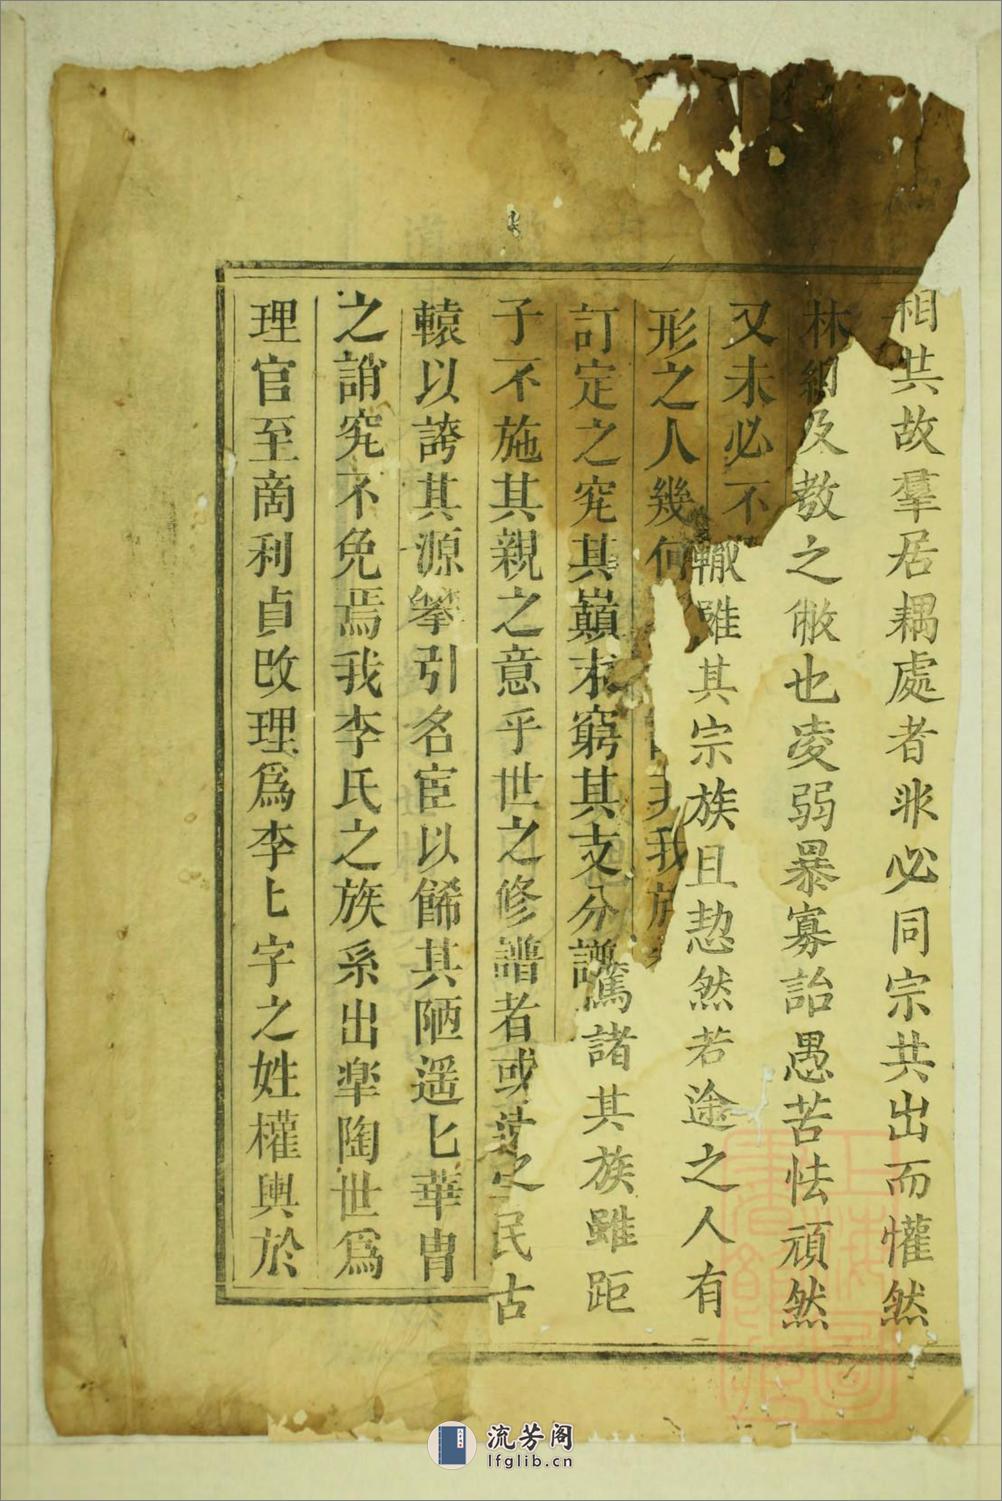 相共故羣居耦處者非必同宗共出而懽然
林網及教之敝也凌弱暴寡詒愚苦怯頑然
又未必不轍雖其宗族且恝然若途之人有
形之人幾何我族篤諸其族雖距
訂定之究其巔末窮其支分譜
子不施其親之意乎世之修譜者或之民古
轅以誇其源攀引名宦以餙其陋遥匕華冑
之誚究不免焉我李氏之族系出皐陶世爲
理官至啇利貞改理爲李匕字之姓權輿於
流芳阁
lfglib.cn